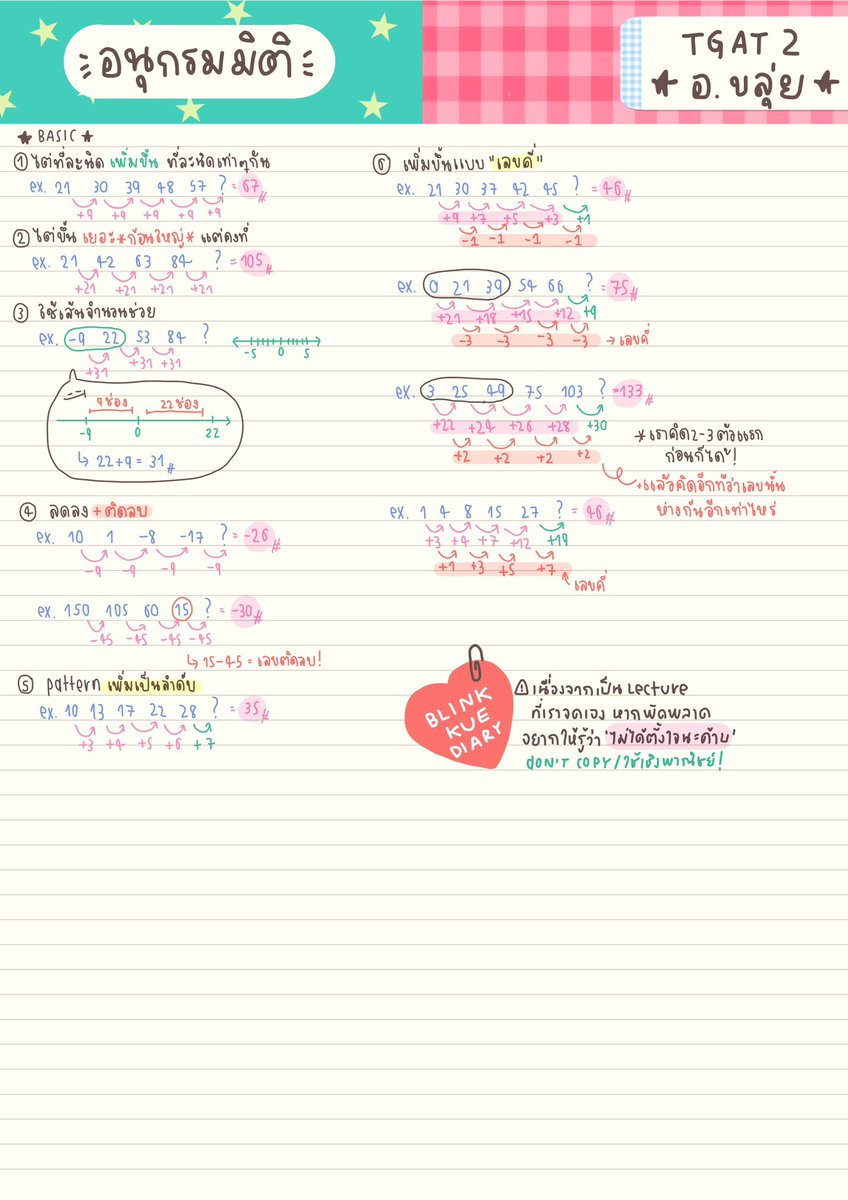 อนุกรมมิติ
TGAT 2
★ อ. ขลุ่ย ★
★ BASIC ★
① ไต่ทีละนิด เพิ่มขึ้น ทีละนิดเท่าๆกัน
ex. 21 30 39 48 57 ? = 67 #
+9 +9 +9 +9 +9
② ไต่ขึ้น เยอะ*ก้อนใหญ่* แต่คงที่
ex. 21 42 63 84 ? = 105 #
+21 +21 +21 +21
③ ใช้เส้นจำนวนช่วย
ex. -9 22 53 84 ?
+31 +31 +31
-5 0 5
9ช่อง 22ช่อง
-9 0 22
↳ 22+9 = 31 #
④ ลดลง +ติดลบ
ex. 10 1 -8 -17 ? = -26 #
-9 -9 -9 -9
ex. 150 105 60 15 ? = -30 #
-45 -45 -45 -45
↳ 15-45 = เลขติดลบ!
⑤ pattern เพิ่มเป็นลำดับ
ex. 10 13 17 22 28 ? = 35 #
+3 +4 +5 +6 +7
⑥ เพิ่มขึ้นแบบ "เลขคี่"
ex. 21 30 37 42 45 ? = 46 #
+9 +7 +5 +3 +1
-1 -1 -1 -1
ex. 0 21 39 54 66 ? = 75 #
+21 +18 +15 +12 +9
-3 -3 -3 -3 → เลขคี่
ex. 3 25 49 75 103 ? =133 #
+22 +24 +26 +28 +30
+2 +2 +2 +2
*เราคิด2-3ตัวแรก
ก่อนก็ได้!
+แล้วคิดอีกทีว่าเลขนั้น
ห่างกันอีกเท่าไหร่
ex. 1 4 8 15 27 ? = 46 #
+3 +4 +7 +12 +19
+1 +3 +5 +7
เลขคี่
BLINK
KUE
DIARY
⚠ เนื่องจากเป็น Lecture
ที่เราจดเอง หากผิดพลาด
อยากให้รู้ว่า 'ไม่ได้ตั้งใจนะค้าบ'
DON'T COPY/ใช้เชิงพาณิชย์!